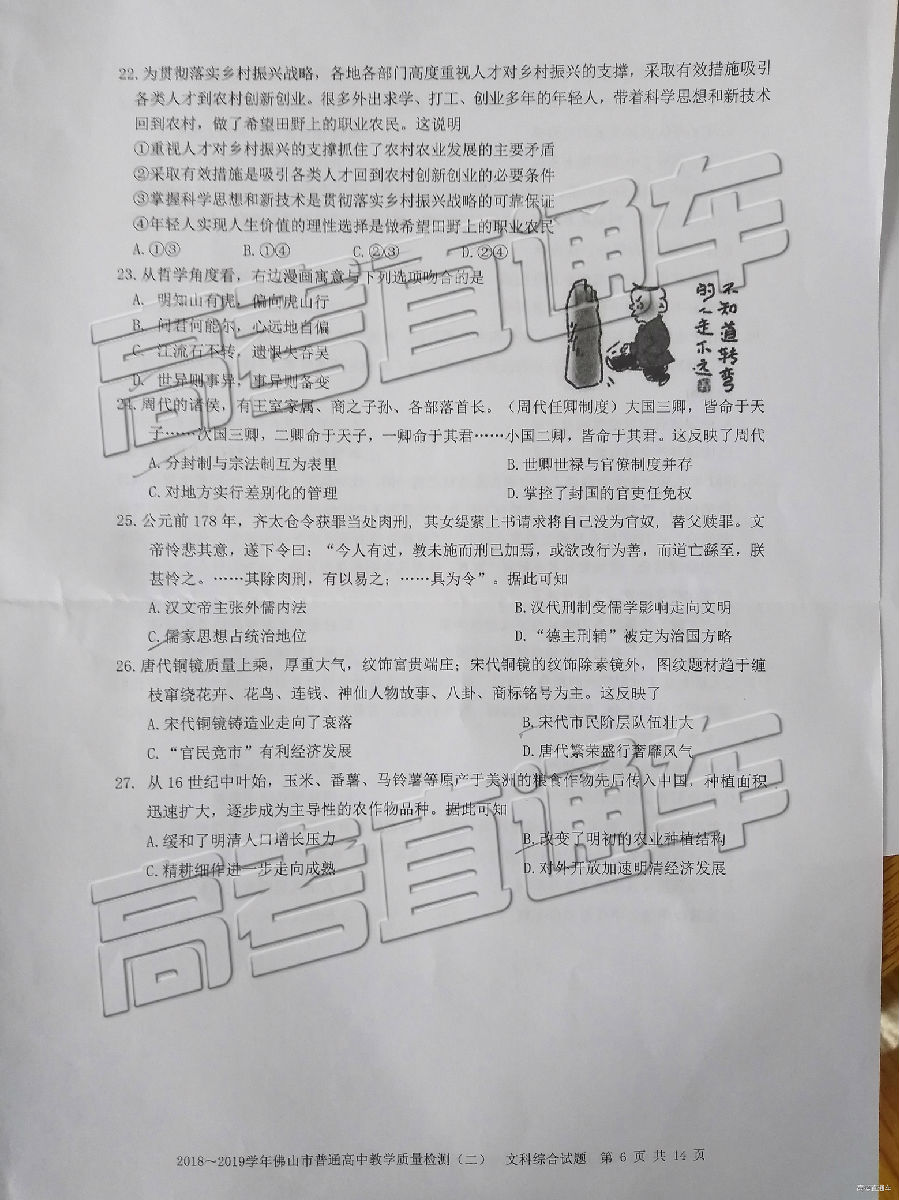 22. 为贯彻落实乡村振兴战略，各地各部门高度重视人才对乡村振兴的支撑，采取有效措施吸引
各类人才到农村创新创业。很多外出求学、打工、创业多年的年轻人，带着科学思想和新技术
回到农村，做了希望田野上的职业农民。这说明
①重视人才对乡村振兴的支撑抓住了农村农业发展的主要矛盾
②采取有效措施是吸引各类人才回到农村创新创业的必要条件
③掌握科学思想和新技术是贯彻落实乡村振兴战略的可靠保证
④年轻人实现人生价值的理性选择是做希望田野上的职业农民
A. ①③ B. ①④ C. ②③ D. ②④
23. 从哲学角度看，右边漫画寓意与下列选项吻合的是
A. 明知山有虎，偏向虎山行
B. 问君何能尔，心远地自偏
C. 江流石不转，遗恨失吞吴
D. 世异则事异，事异则备变
不知道转弯
的人走不远
24. 周代的诸侯，有王室家属、商之子孙、各部落首长。（周代任卿制度）大国三卿，皆命于天
子……次国三卿，二卿命于天子，一卿命于其君……小国二卿，皆命于其君。这反映了周代
A. 分封制与宗法制互为表里 B. 世卿世禄与官僚制度并存
C. 对地方实行差别化的管理 D. 掌控了封国的官吏任免权
25. 公元前 178 年，齐太仓令获罪当处肉刑，其女缇萦上书请求将自己没为官奴，替父赎罪。文
帝怜悲其意，遂下令曰：“今人有过，教未施而刑已加焉，或欲改行为善，而道亡繇至，朕
甚怜之。……其除肉刑，有以易之；……具为令”。据此可知
A. 汉文帝主张外儒内法 B. 汉代刑制受儒学影响走向文明
C. 儒家思想占统治地位 D. “德主刑辅”被定为治国方略
26. 唐代铜镜质量上乘，厚重大气，纹饰富贵端庄；宋代铜镜的纹饰除素镜外，图纹题材趋于缠
枝窜绕花卉、花鸟、连钱、神仙人物故事、八卦、商标铭号为主。这反映了
A. 宋代铜镜铸造业走向了衰落 B. 宋代市民阶层队伍壮大
C. “官民竞市”有利经济发展 D. 唐代繁荣盛行奢靡风气
27. 从 16 世纪中叶始，玉米、番薯、马铃薯等原产于美洲的粮食作物先后传入中国，种植面积
迅速扩大，逐步成为主导性的农作物品种。据此可知
A. 缓和了明清人口增长压力 B. 改变了明初的农业种植结构
C. 精耕细作进一步走向成熟 D. 对外开放加速明清经济发展
高考直通车
高考直通车
2018～2019学年佛山市普通高中教学质量检测（二） 文科综合试题 第 6 页 共 14 页
高考直通车